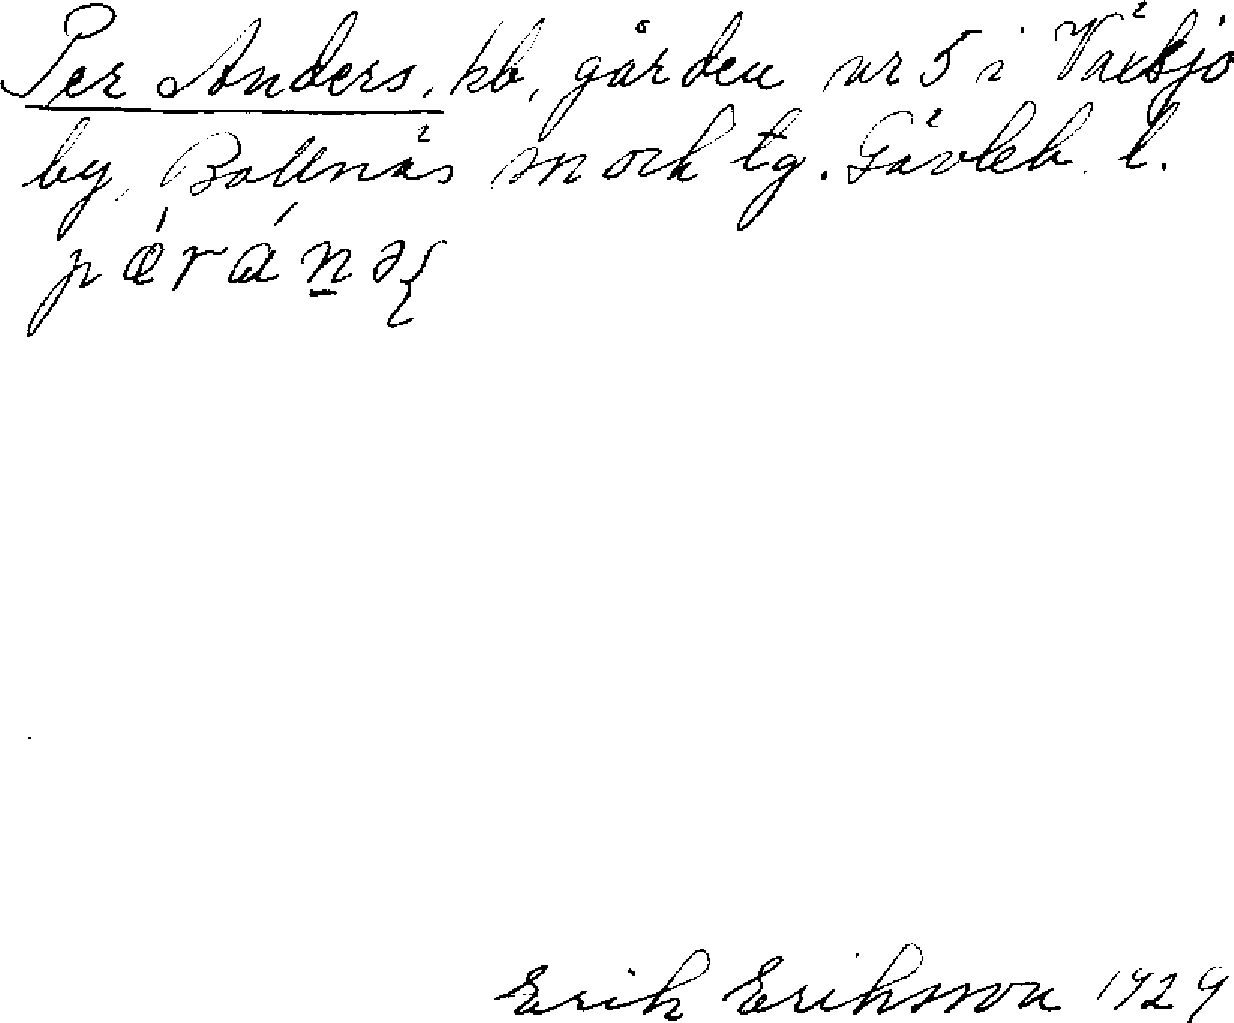 Per Anders, kb, gården nr 5 i Växsjö
by, Bollnäs sn och tg. Gävleb. l.
pǽráṉə
Erik Eriksson 1929